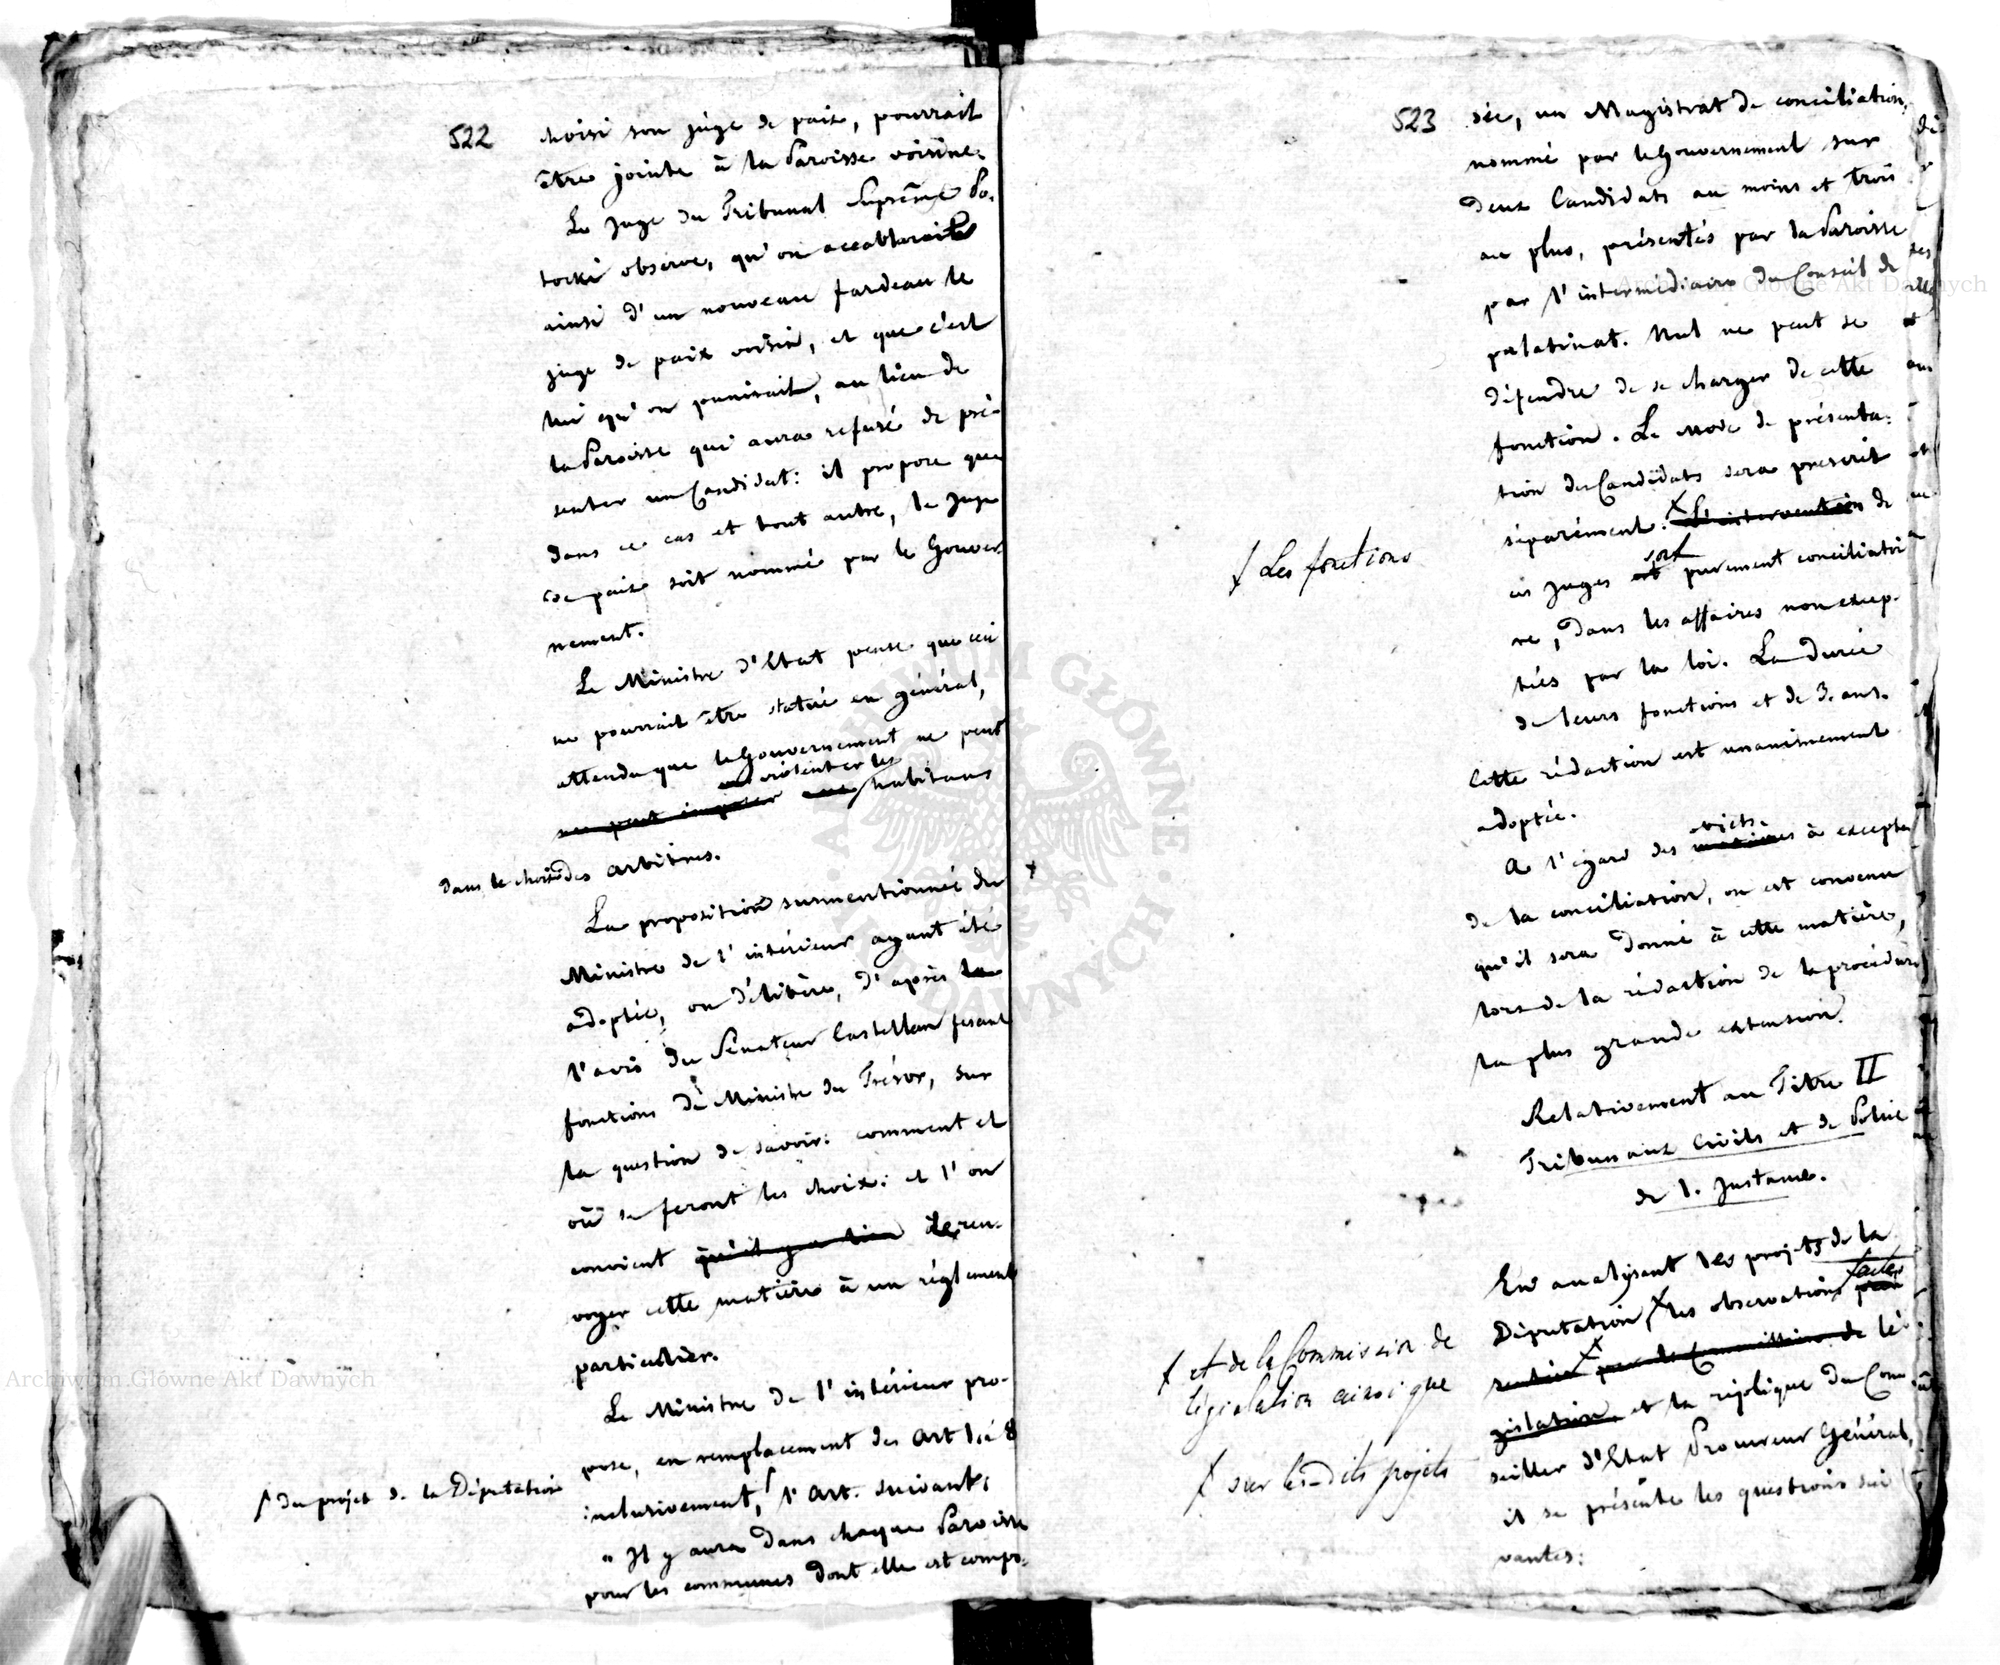 522
choisi son juge de paix, pourrait
être jointe à la Paroisse voisine.
Le Juge du Tribunal Suprême Po-
tocki observe, qu'on accablerait
ainsi d'un nouveau fardeau le
juge de paix voisin, et que c'est
lui qu'on punirait, au lieu de
la Paroisse qui aura refusé de pré-
senter un Candidat: il propose que
dans ce cas et tout autre, le juge
de paix soit nommé par le Gouver-
nement.
Le Ministre d'Etat pense que ceci
ne pourrait être statué en général,
attendu que le Gouvernement ne peut
violenter les
ne peut imposer aux habitans
dans le choix des arbitres.
La proposition surmentionnée du
Ministre de l'intérieur ayant été
adoptée, on délibère, d'après la
l'avis du Sénateur Castellan fesant
fonctions de Ministre du Trésor, sur
la question de savoir: comment et
où se feront les choix: et l'on
convient qu'il y a lieu de ren-
voyer cette matière à un réglement
particulier.
Le Ministre de l'intérieur pro-
pose, en remplacement des Art 1. à 8
inclusivement, l'Art. suivant:
du projet de la Députation
" Il y aura dans chaque Paroisse
pour les communes dont elle est compo-
523
sée, un Magistrat de conciliation,
nommé par le Gouvernement sur
deux Candidats au moins et trois
au plus, présentés par la Paroisse
par l'intermédiaire du Conseil de
palatinat. Nul ne peut se
défendre de se charger de cette
fonction. Le mode de présenta-
tion des Candidats sera prescrit
séparément. L'intervention de
Les fonctions
sont
ces juges est purement conciliatoi
re, dans les affaires non excep-
tées par la loi. La durée
de leurs fonctions est de 3. ans.
Cette rédaction est unanimement
adoptée.
objets
A l'égard des matières à excepter
de la conciliation, on est convenu
qu'il sera donné à cette matière,
lors de la rédaction de la procédure
la plus grande extension.
Relativement au Titre II
Tribunaux Civils et de Police
de 1. Instance.
En analysant les projets de la
faites
Députation, les observations
et de la Commission de
législation ainsi que
par la Commission de lé-
gislation, et la réplique du Con-
sur les-dits projets
seiller d'Etat Procureur Général,
il se présente les questions sui
vantes:
Archiwum Główne Akt Dawnych
Archiwum Główne Akt Dawnych
ARCHIWUM GŁÓWNE AKT DAWNYCH